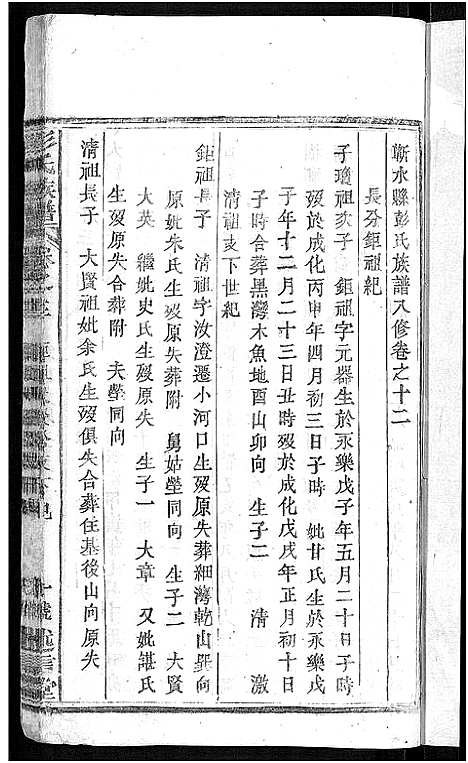 蘄水縣彭氏族譜八修卷之十二
長分鉅祖紀
子瓊祖次子 鉅祖字元器生於永樂戊子年五月二十日子時
歿於成化丙申年四月初三日子時 妣甘氏生於永樂戊
子年十二月二十三日丑時歿於成化戊戌年正月初十日
子時合葬黑灣木魚地酉山卯向 生子二 清 激
清祖支下世紀
鉅祖長子 清祖字汝澄遷小河口生歿原失葬細灣乾山巽向
原妣朱氏生歿原失葬附 舅姑塋同向 生子二 大賢
大英 繼妣史氏生歿原失 生子一 大章 又妣諶氏
生歿原失合葬附 夫塋同向
清祖長子 大賢祖妣余氏生歿俱失合葬住基後山向原失
彭氏族譜 卷之十二